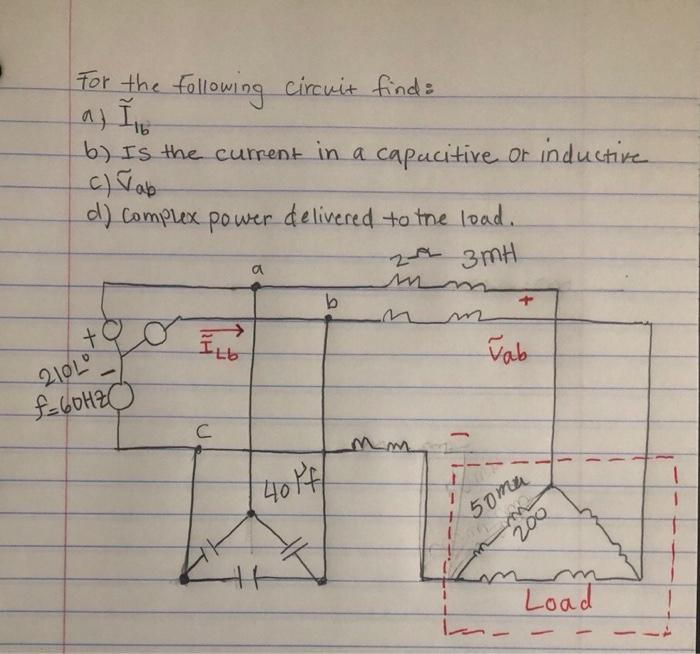 For the following circuit find:
a) Ĩ₁b
b) Is the current in a capacitive or inductive
c) Ṽab
d) Complex power delivered to the load.
2Ω 3mH
a
b
+
+
ĨLb
Ṽab
210∠0°
−
f=60Hz
C
−
40μf
50m
200
Load